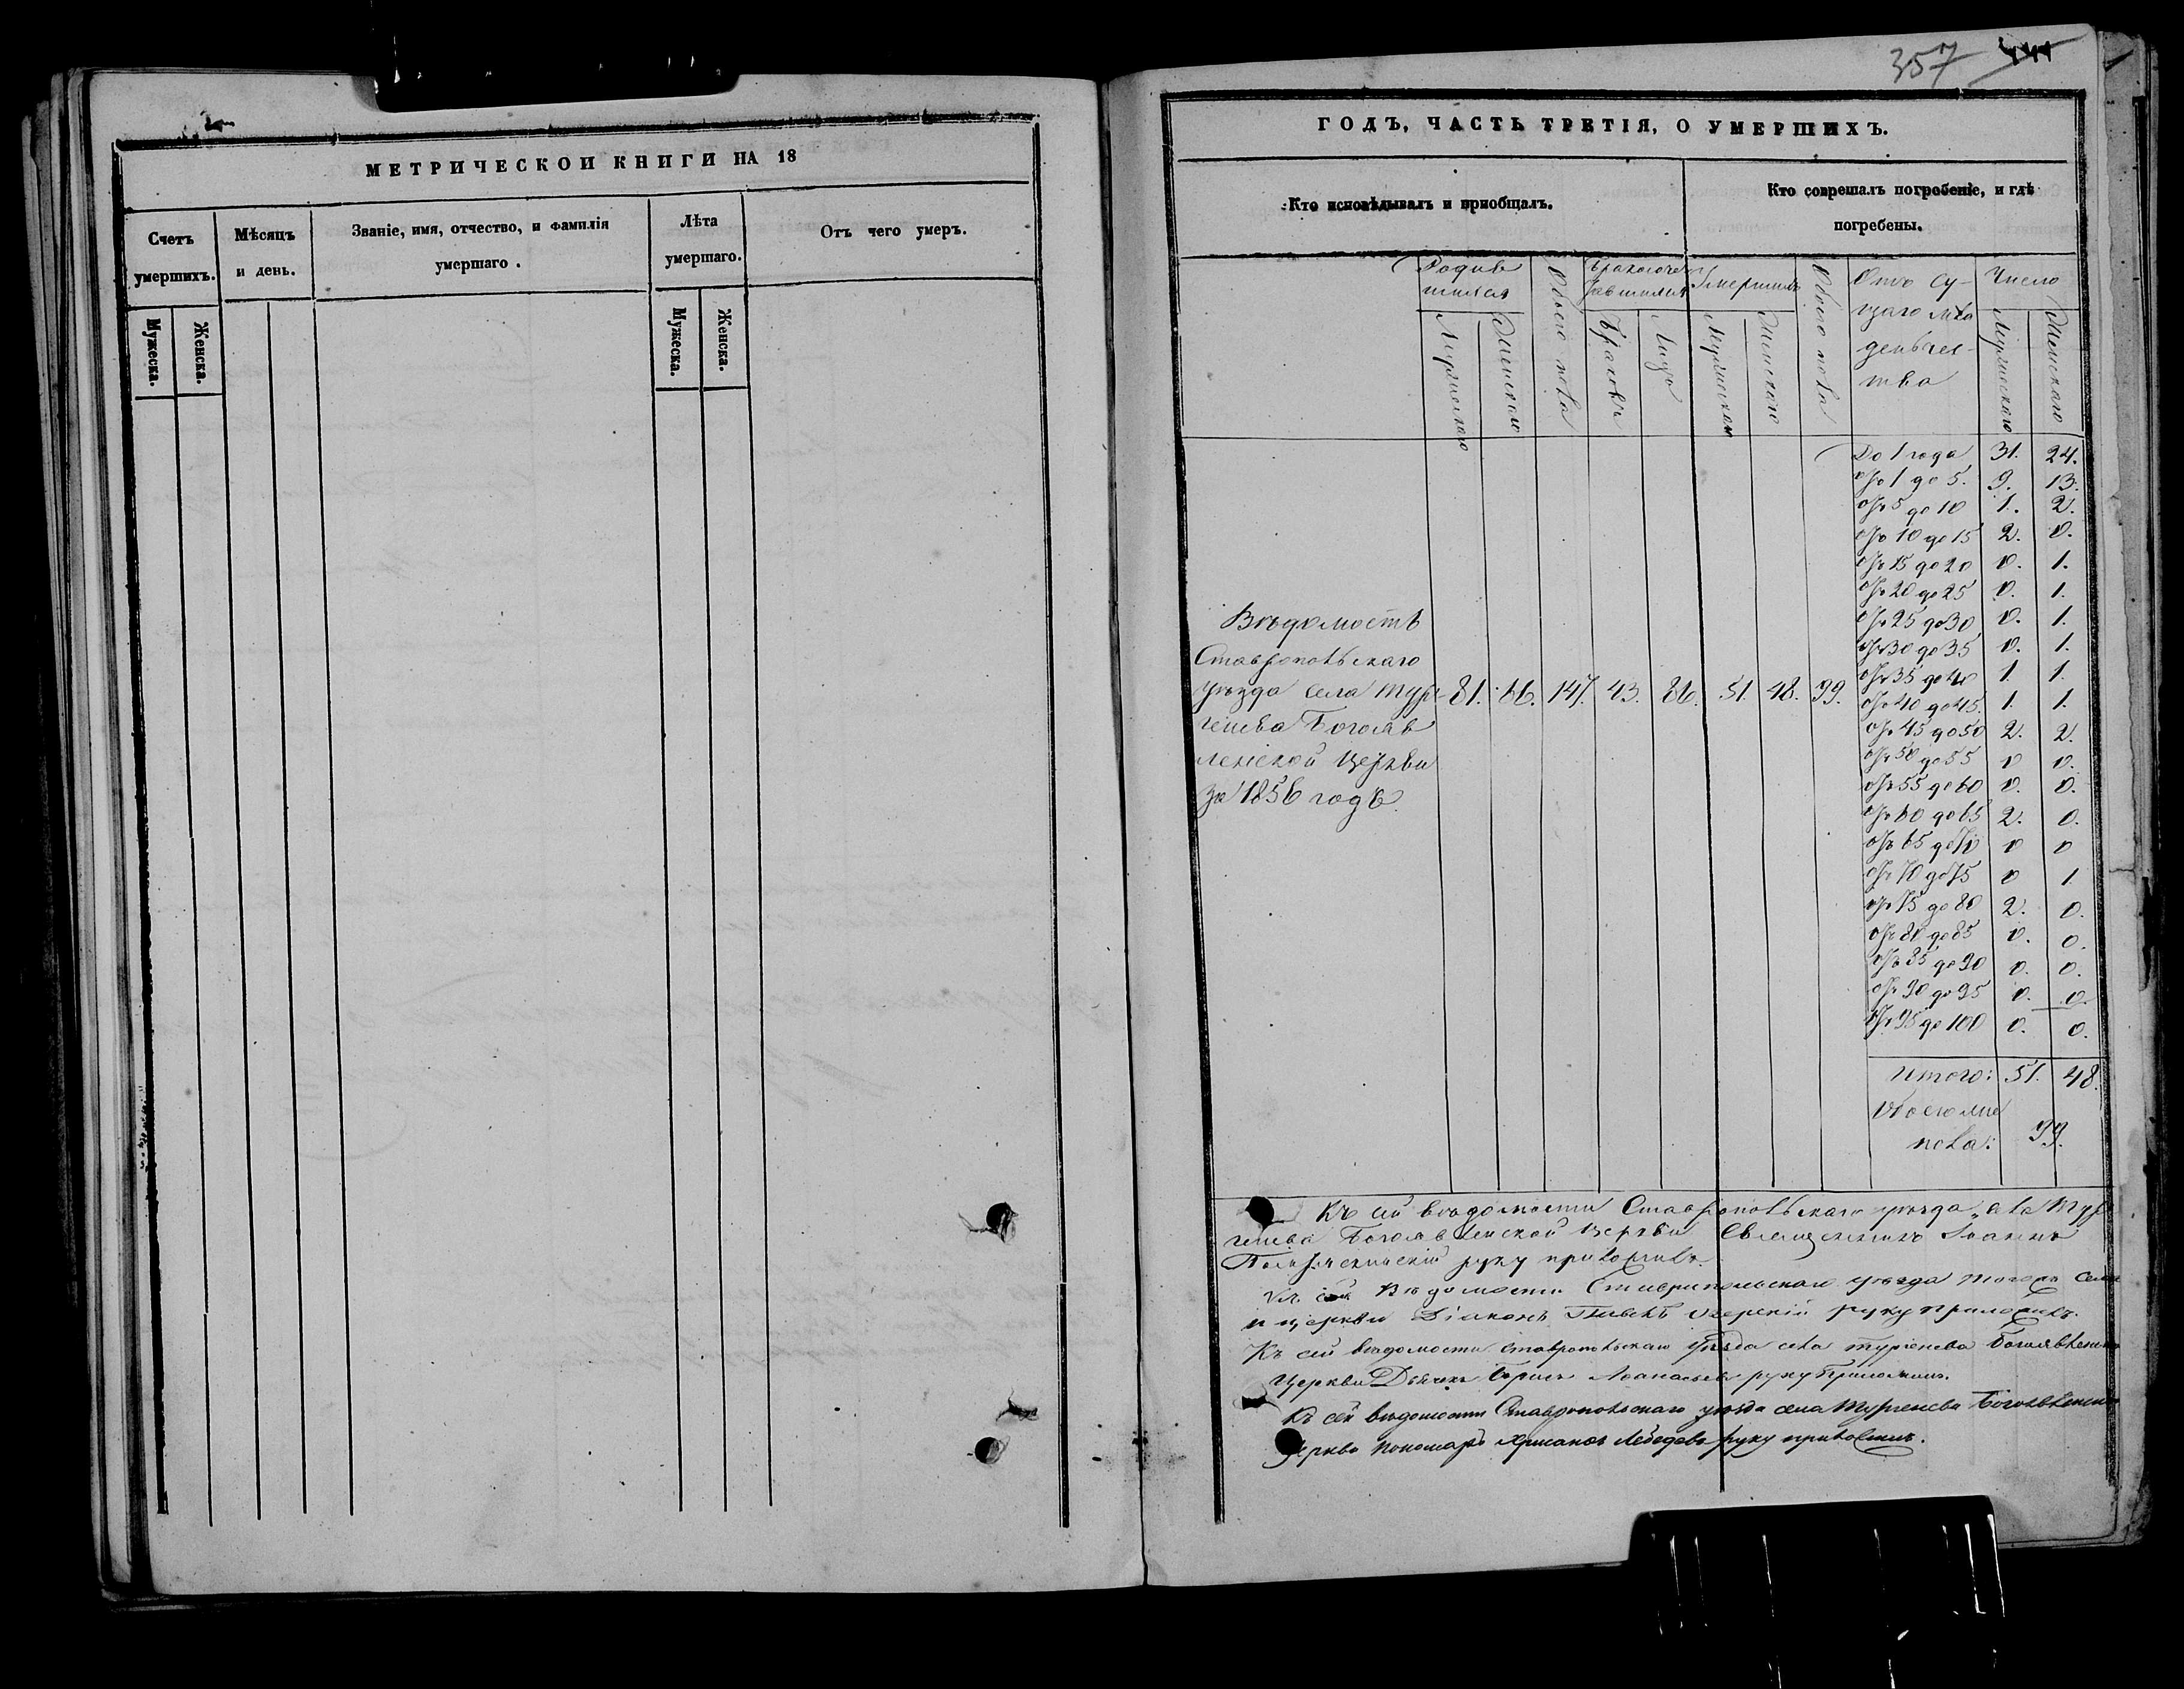 МЕТРИЧЕСКОЙ КНИГИ НА 18
Счетъ умершихъ.
Мужеска.
Женска.
Мѣсяцъ и день.
Званіе, имя, отчество, и фамилія умершаго.
Лѣта умершаго.
Мужеска.
Женска.
Отъ чего умеръ.
357
ГОДЪ, ЧАСТЬ ТРЕТІЯ, О УМЕРШИХЪ.
Кто исповѣдывалъ и пріобщалъ.
Кто совершалъ погребеніе, и гдѣ
погребены.
Родив
шихся
Мужескаго
Женскаго
Обоего пола
Бракосоче
тавшихся
Браковъ
Лицъ
Умершихъ
Мужескаго
Женскаго
Обоего пола
Отъ су-
щаго мла
денчес-
тва
Число
Мужескаго
Женскаго
Вѣдомость
Ставропольскаго
уѣзда села Тур
генева Богояв
ленской церкви
за 1856 годъ.
81. 66. 147. 43. 86. 51. 48. 99.
До 1 года 31. 24.
Отъ 1 до 5. 9. 13.
Отъ 5 до 10 1. 2.
Отъ 10 до 15 2. 0.
Отъ 15 до 20 0. 1.
Отъ 20 до 25 0. 1.
Отъ 25 до 30 0. 1.
Отъ 30 до 35 0. 1.
Отъ 35 до 40 1 1.
Отъ 40 до 45. 1. 1.
Отъ 45 до 50 2. 2.
Отъ 50 до 55 0 0.
Отъ 55 до 60 0. 0.
Отъ 60 до 65 2. 0.
Отъ 65 до 70 0 0
Отъ 70 до 75 0 1.
Отъ 75 до 80 2. 0.
Отъ 80 до 85 0. 0.
Отъ 85 до 90 0. 0.
Отъ 90 до 95 0. 0.
Отъ 95 до 100 0. 0.
Итого: 51. 48.
пола: 99.
Къ сей вѣдомости Ставропольскаго уѣзда села Тур
генева Богоявленской церкви Священникъ Іоаннъ
руку приложилъ.
Къ сей Вѣдомости Ставропольскаго уѣзда тогожъ села
и церкви Діаконъ Павелъ Озерскій руку приложилъ.
Къ сей вѣдомости Ставропольскаго уѣзда села Тургенева Богоявленской
Церкви Дьячекъ Борисъ Аѳанасьевъ руку приложилъ.
Къ сей вѣдомости Ставропольскаго уѣзда села Тургенева Богоявленской
Церкви пономарь Лебедевъ руку приложилъ.